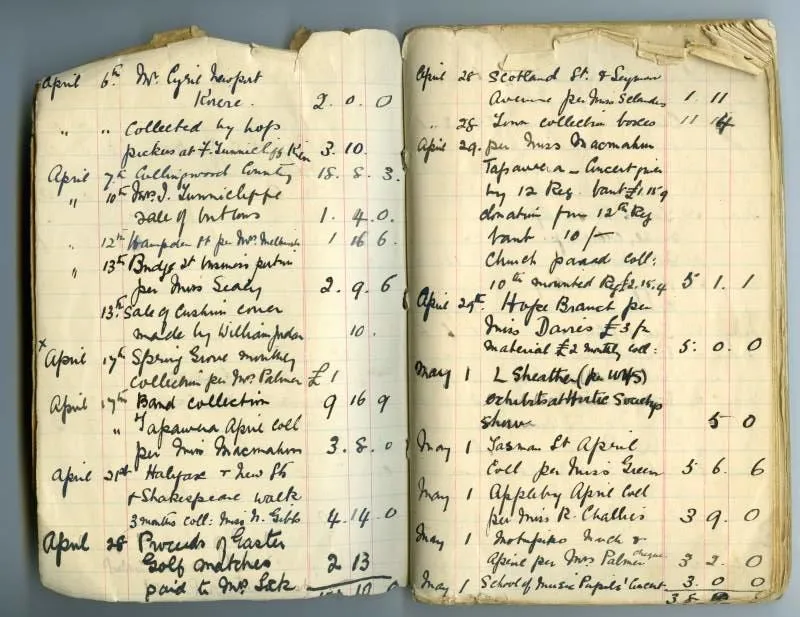 April 6th. Mr. Cyril Newport
Knere. 2. 0. 0
" " Collected by hops
pickers at F. Tunnicliffe 3. 10.
April 7th Collingwood County 18. 8. 3.
" 10th Mrs. J. Tunnicliffe
sale of buttons 1. 4. 0.
" 12th Hampden St per Mrs. 1 16 6.
" 13th Bridge at business
per Miss Sealy 2. 9. 6
13th Sale of Cushion cover
made by William 10.
x
April 17th Spring Grove monthly
Collection per Mrs. Palmer £ 1
April 17th Band collection 9 16 9
" Tapawera April coll
per Miss Macmahon 3. 8. 0
April 21st Halifax + New Sts
+ Shakespeare walk
3 months coll: Miss N. Gibbs 4. 14. 0
April 28 Proceeds of Easter
Golf matches 2 13
paid to Mrs. 10 0
April 28 Scotland St. & Seymour
Avenue per Miss Selanders 1. 11
" 28 Town collection boxes 11
April 29. per Miss Macmahon
Tapawera — Concert given
by 12 Reg. £1.15.9
donation from 12th Reg
10/-
Church parade coll:
10th mounted Reg £2.15.4 5 1. 1
April 29th. Hope Branch per
Miss Davies £3 for
material £2 monthly coll: 5. 0. 0
May 1 L Sheather (per WHS)
exhibits at Hortic Society's
Show 5 0
May 1 Tasman St April
Coll per Miss Green 5 6. 6
May 1 Appleby April Coll
per Miss R. Challies 3 9. 0
May 1 Motupiko
April per Mrs Palmer cheque 3 2. 0
May 1 School of Music Pupils' Concert 3. 0 0
38